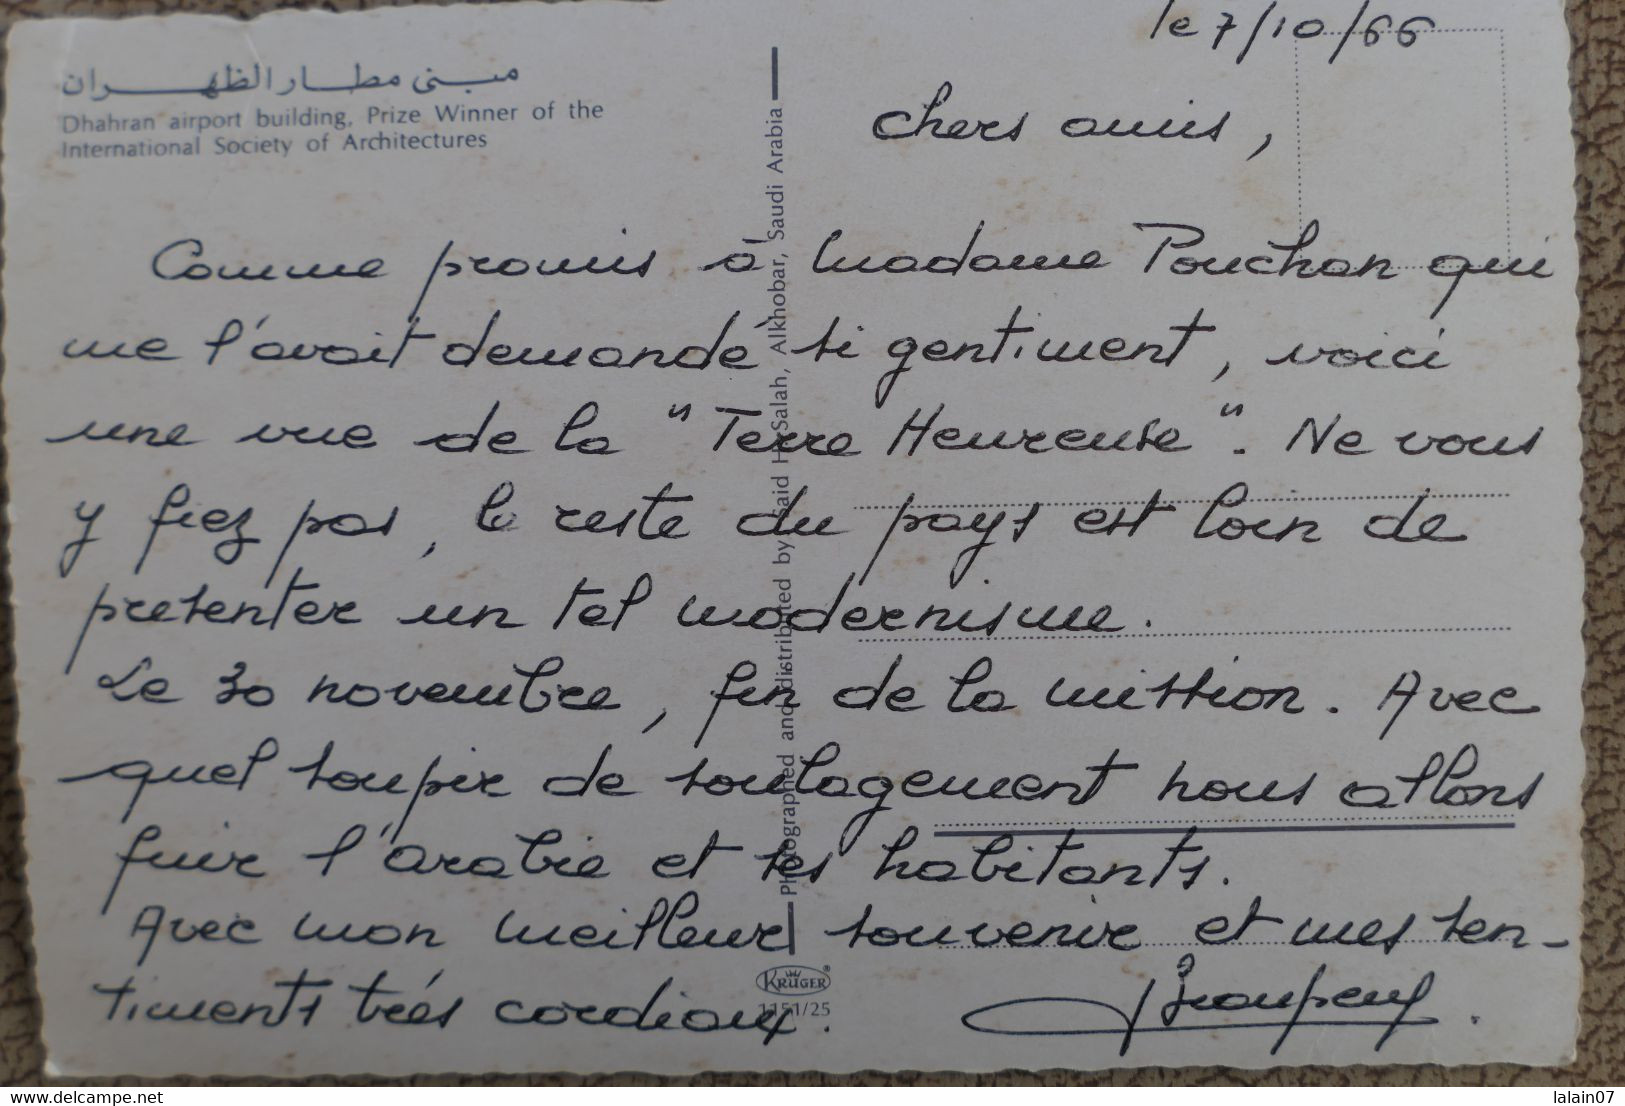 le 7/10/66
مبنى مطار الظهران
Dhahran airport building, Prize Winner of the
International Society of Architectures
Chers amis,
Comme promis à Madame Pouchan qui
me l'avait demandé si gentiment, voici
une vue de la "Terre Heureuse". Ne vous
y fiez pas, le reste du pays est loin de
présenter un tel modernisme.
Le 30 novembre, fin de la mission. Avec
quel soupir de soulagement nous allons
fuir l'arabie et ses habitants.
Avec mon meilleur souvenir et mes sen-
timents très cordiaux.
Photographed and distributed by Said H. Salah, Alkhobar, Saudi Arabia
KRÜGER®
1151/25
delcampe.net
lalain07